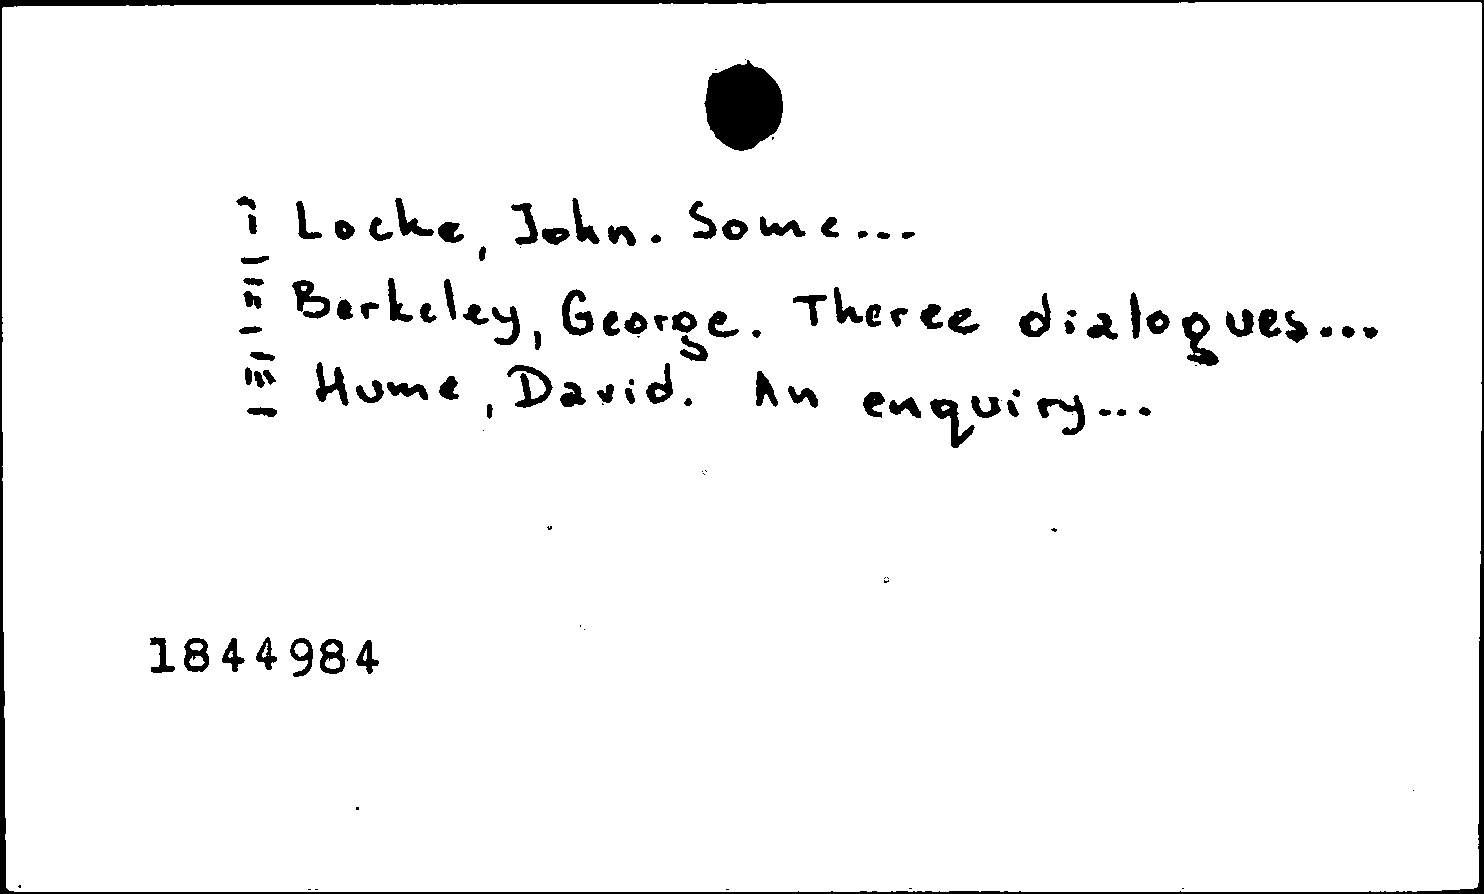 I Locke, John. Some...
II Berkeley, George. Theree dialogues...
III Hume, David. An enquiry...
1844984